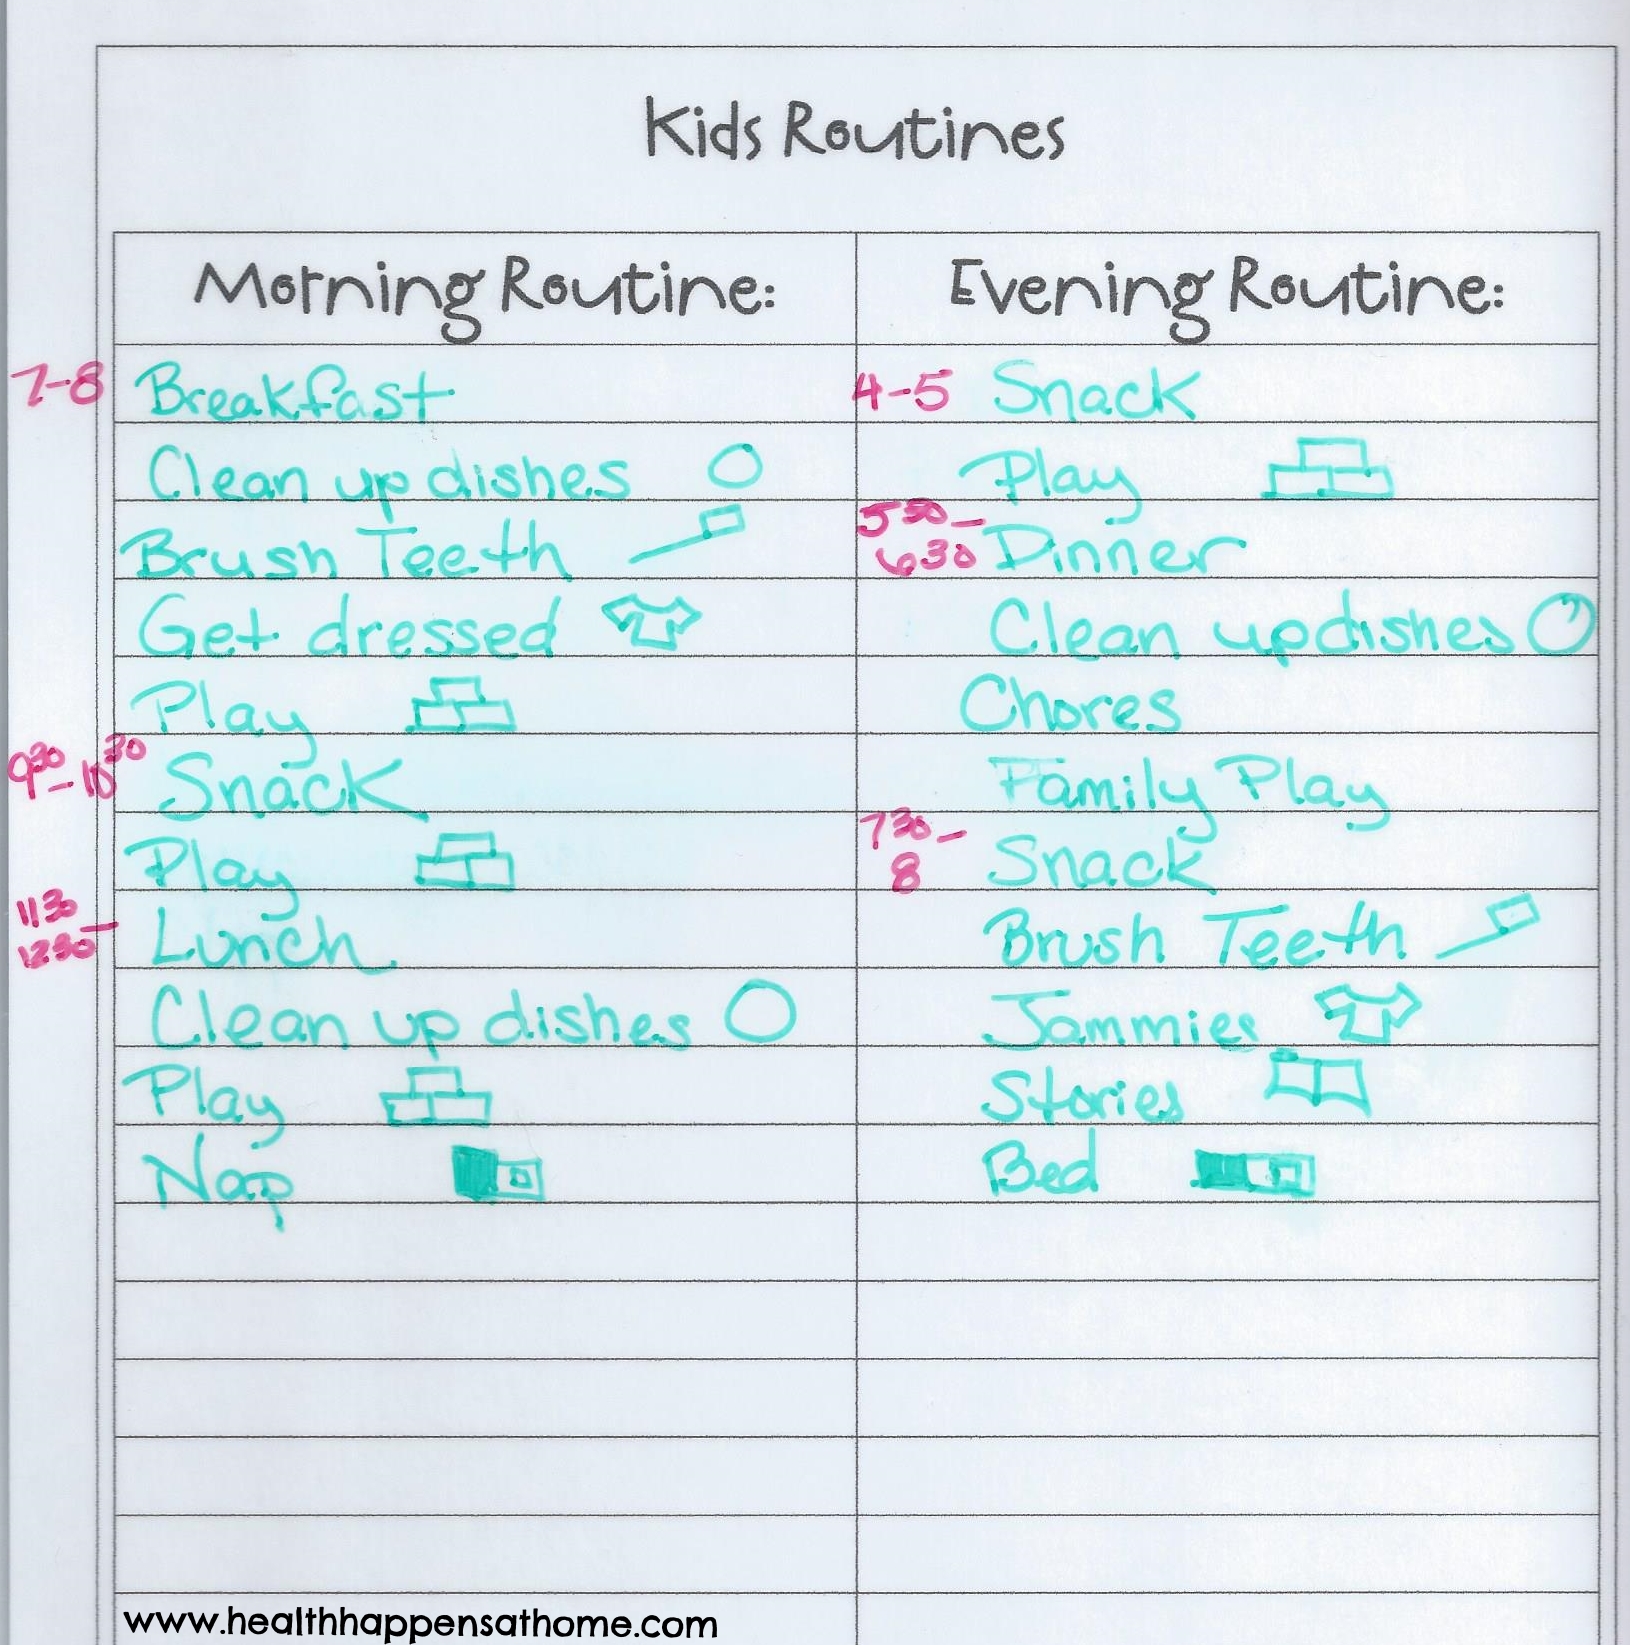 Kids Routines
Morning Routine:
7-8 Breakfast
Clean up dishes
Brush Teeth
Get dressed
Play
9 30 - 10 30 Snack
Play
11 30 - 12 30 Lunch
Clean up dishes
Play
Nap
Evening Routine:
4-5 Snack
Play
5 30 - 6 30 Dinner
Clean up dishes
Chores
Family Play
7 30 - 8 Snack
Brush Teeth
Jammies
Stories
Bed
www.healthhappensathome.com